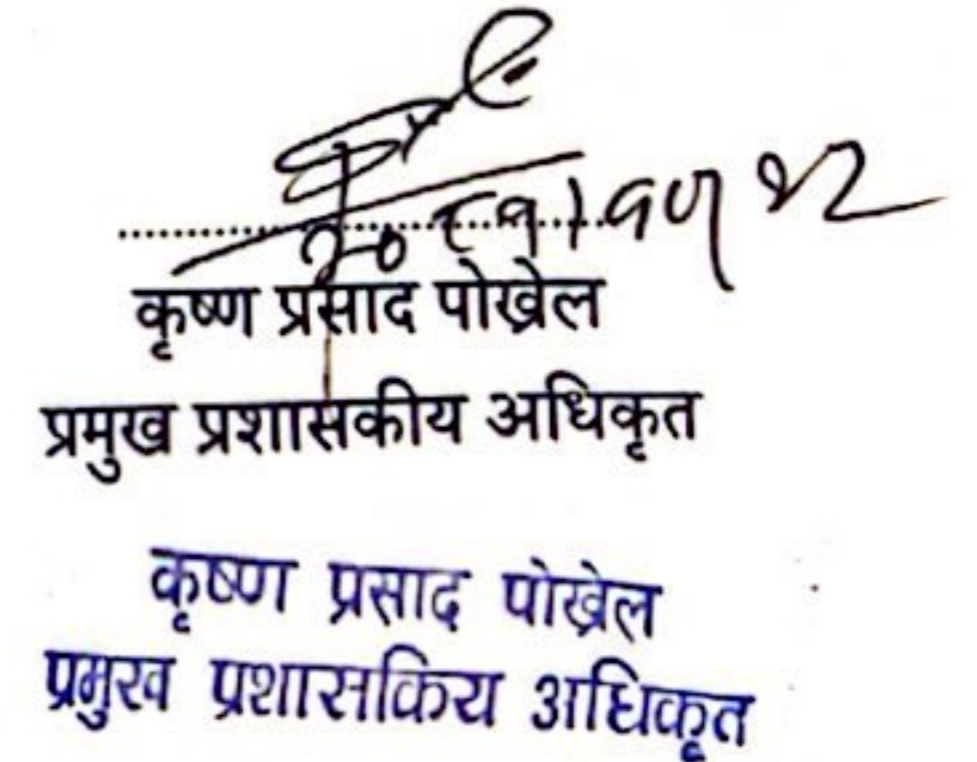 कृष्ण प्रसाद पोख्रेल
प्रमुख प्रशासकीय अधिकृत
कृष्ण प्रसाद पोख्रेल
प्रमुख प्रशासकिय अधिकृत